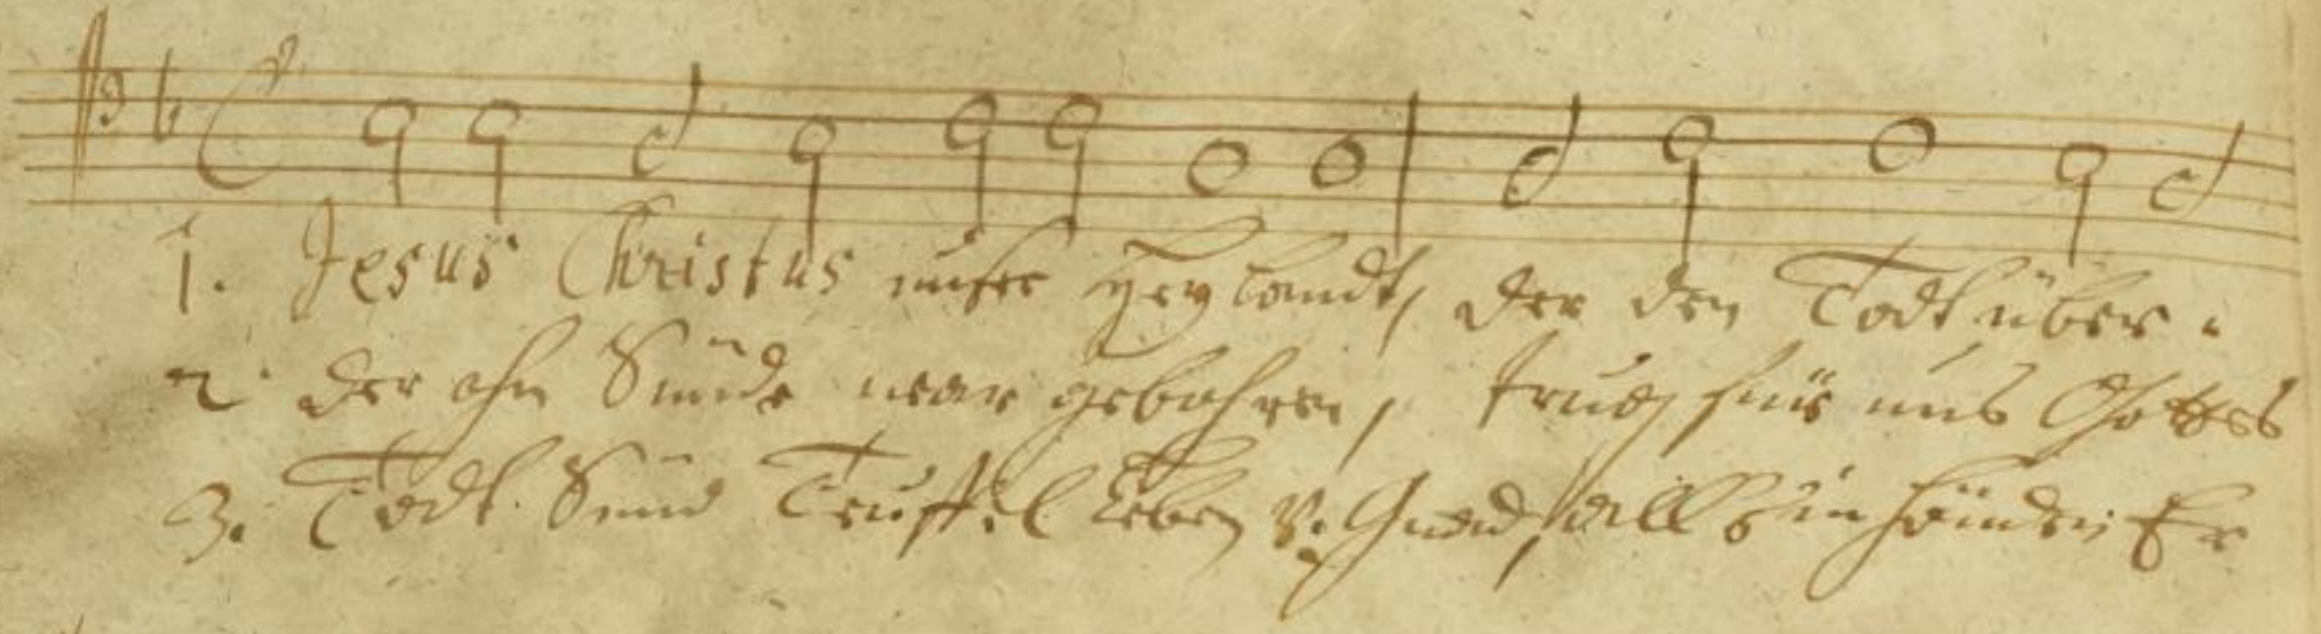 1. Jesus Christus unser Heylandt, der den Todt über-
2. der ohn Sünde war gebohren, trug für uns Gottes
3. Todt Sünd Teuffel Leben v. Gnad, alls in händen Er